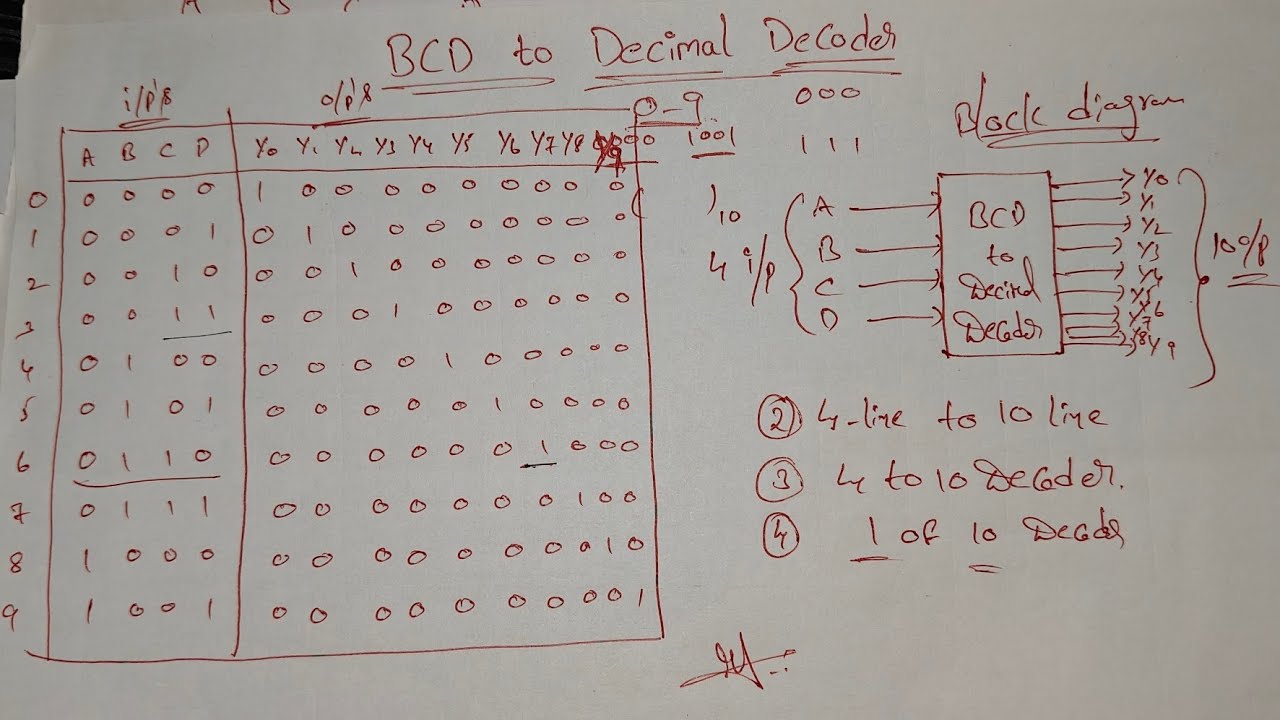 BCD to Decimal Decoder
i/p's o/p's 0-9 000
1001 111
A B C D Y0 Y1 Y2 Y3 Y4 Y5 Y6 Y7 Y8 Y9
0 0 0 0 0 1 0 0 0 0 0 0 0 0 0
1 0 0 0 1 0 1 0 0 0 0 0 0 0 0
2 0 0 1 0 0 0 1 0 0 0 0 0 0 0
3 0 0 1 1 0 0 0 1 0 0 0 0 0 0
4 0 1 0 0 0 0 0 0 1 0 0 0 0 0
5 0 1 0 1 0 0 0 0 0 1 0 0 0 0
6 0 1 1 0 0 0 0 0 0 0 1 0 0 0
7 0 1 1 1 0 0 0 0 0 0 0 1 0 0
8 1 0 0 0 0 0 0 0 0 0 0 0 1 0
9 1 0 0 1 0 0 0 0 0 0 0 0 0 1
( )10
Block diagram
4 i/p
A
B
C
D
BCD
to
Decimal
Decoder
Y0
Y1
Y2
Y3
Y4
Y5
Y6
Y7
Y8 Y9
10 o/p
② 4-line to 10 line
③ 4 to 10 Decoder.
④ 1 of 10 Decoder